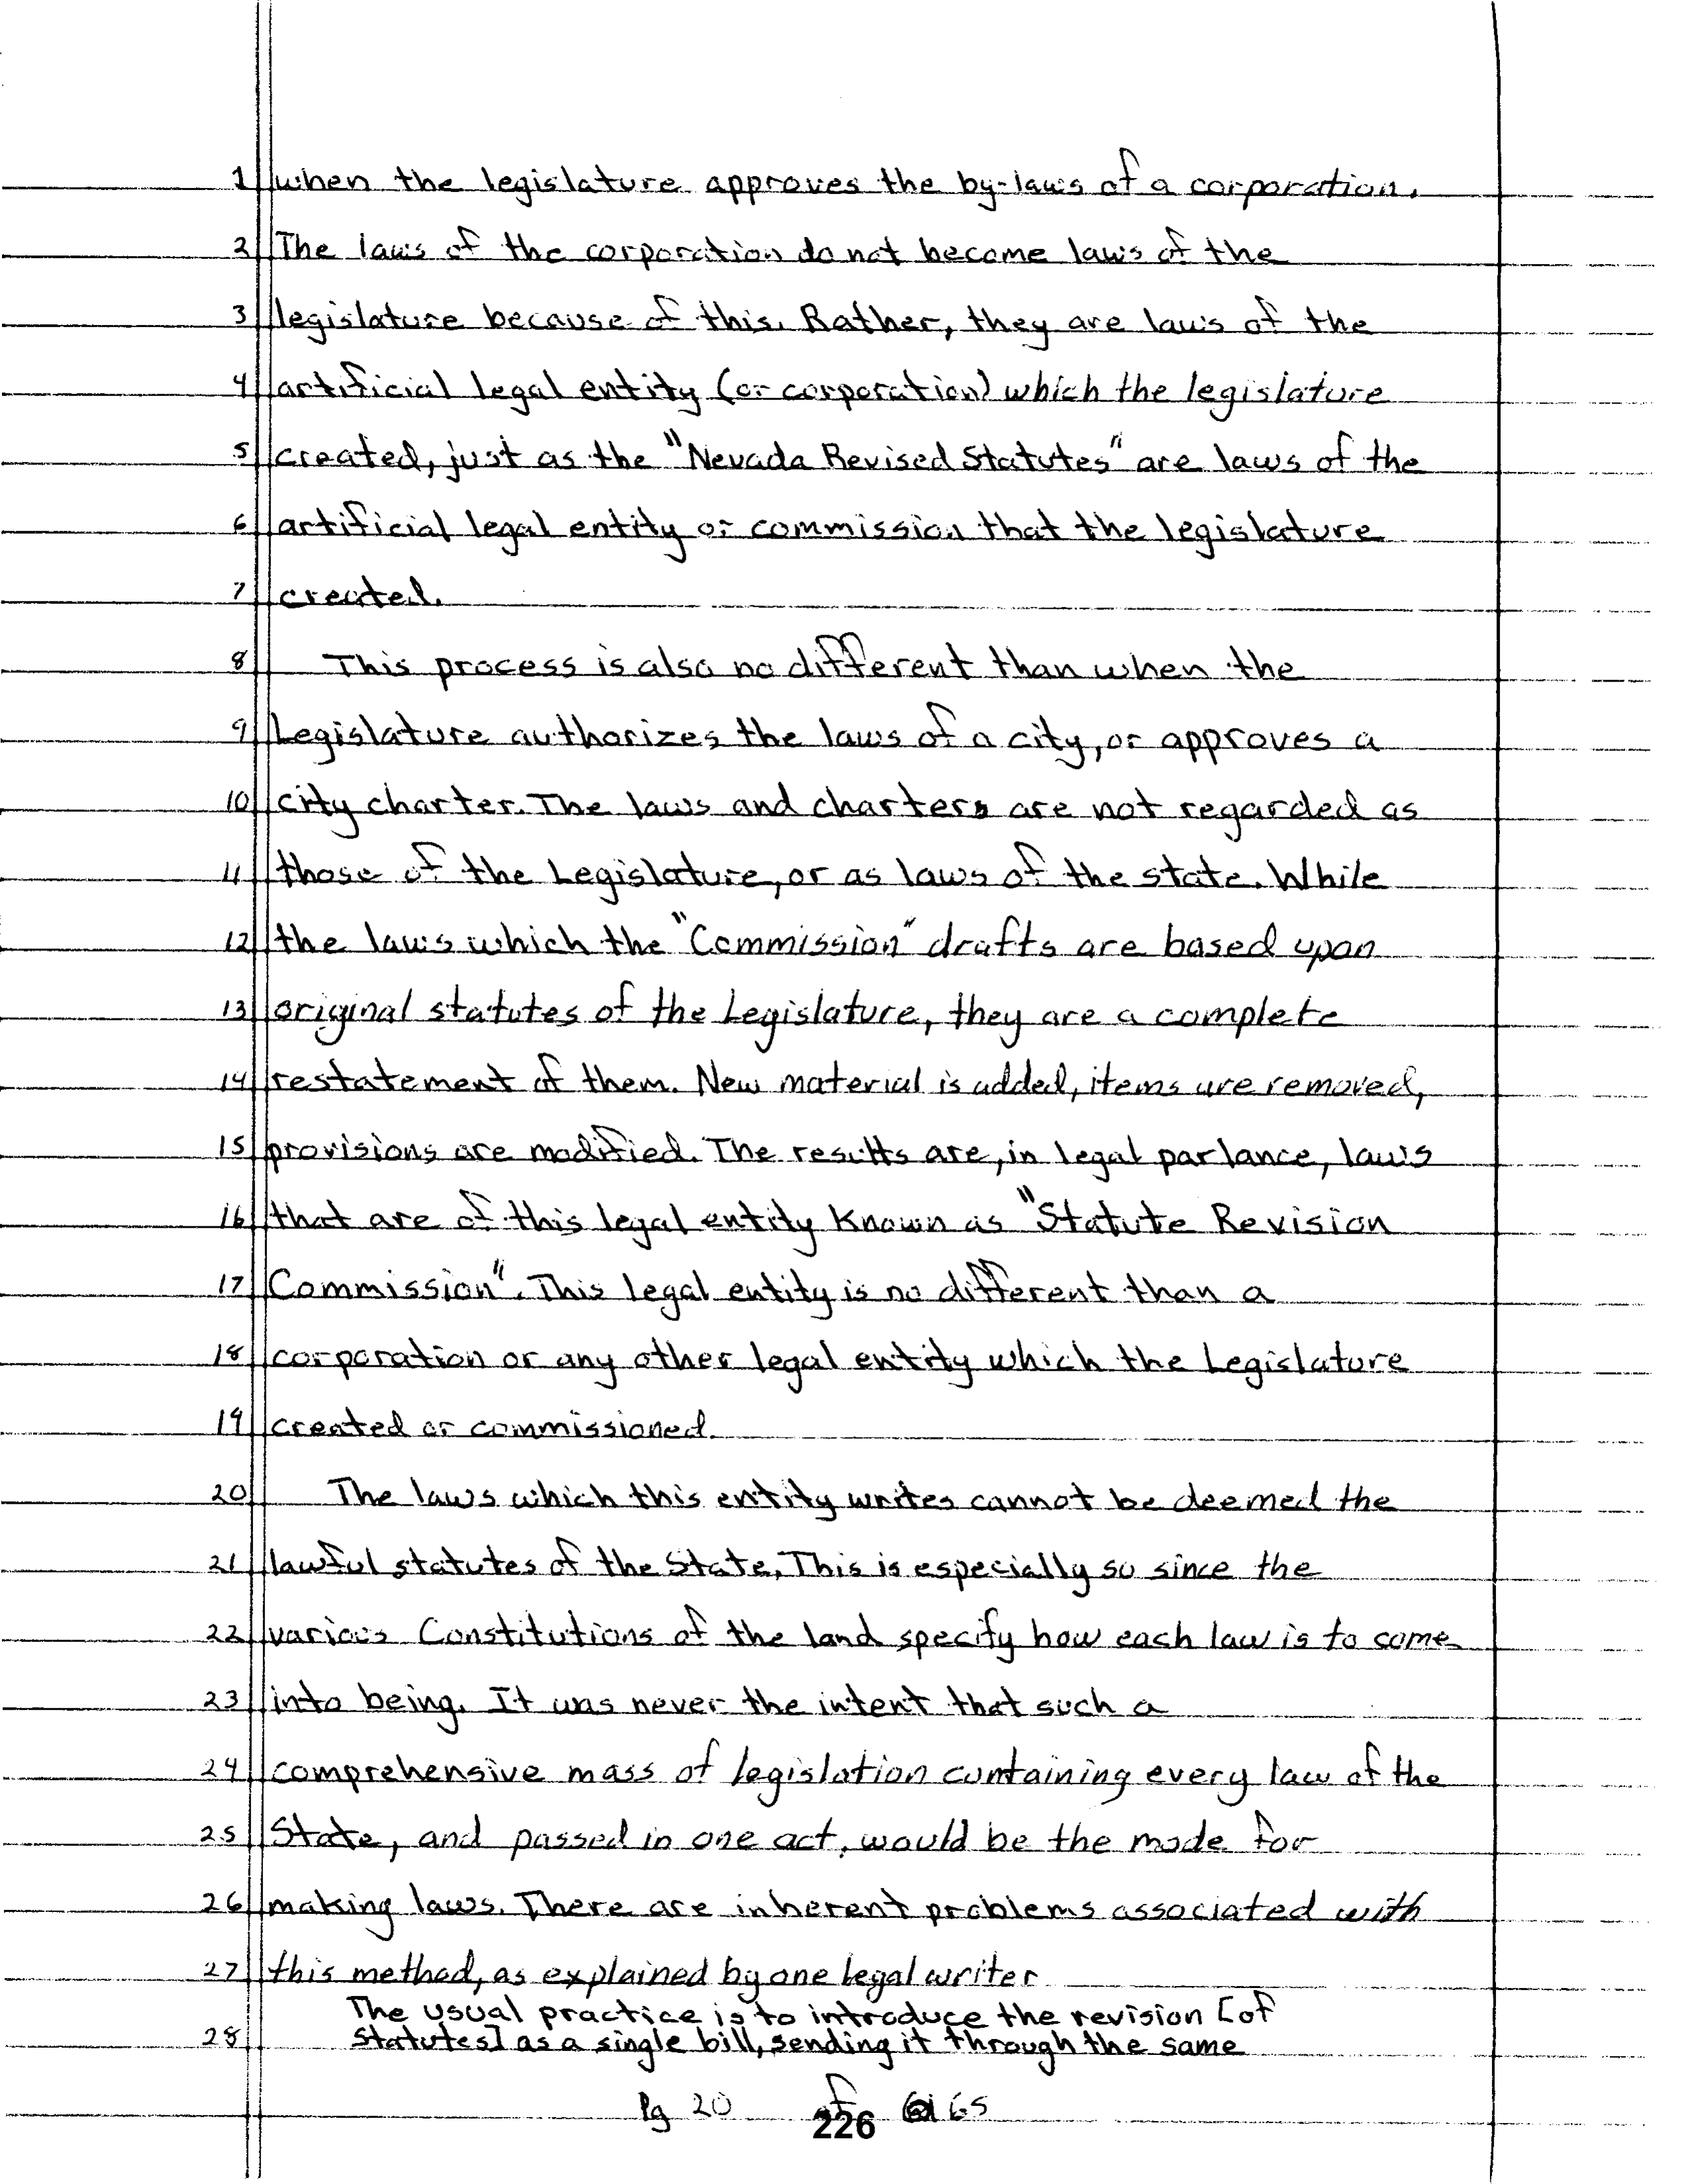 1 when the legislature approves the by-laws of a corporation.
2 The laws of the corporation do not become laws of the
3 legislature because of this. Rather, they are laws of the
4 artificial legal entity (or corporation) which the legislature
5 created, just as the "Nevada Revised Statutes" are laws of the
6 artificial legal entity or commission that the legislature
7 created.
8 This process is also no different than when the
9 Legislature authorizes the laws of a city, or approves a
10 city charter. The laws and charters are not regarded as
11 those of the Legislature, or as laws of the state. While
12 the laws which the "Commission" drafts are based upon
13 original statutes of the Legislature, they are a complete
14 restatement of them. New material is added, items are removed,
15 provisions are modified. The results are, in legal parlance, laws
16 that are of this legal entity known as "Statute Revision
17 Commission". This legal entity is no different than a
18 corporation or any other legal entity which the Legislature
19 created or commissioned.
20 The laws which this entity writes cannot be deemed the
21 lawful statutes of the State. This is especially so since the
22 various Constitutions of the land specify how each law is to come
23 into being. It was never the intent that such a
24 comprehensive mass of legislation containing every law of the
25 State, and passed in one act, would be the mode for
26 making laws. There are inherent problems associated with
27 this method, as explained by one legal writer
The usual practice is to introduce the revision [of
28 Statutes] as a single bill, sending it through the same
Pg 20 of 65
226